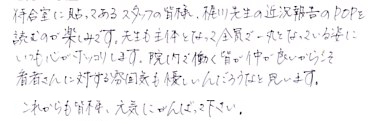 待合室に貼ってあるスタッフの皆様、梶川先生の近況報告のPOPを
読むのが楽しみです。先生も主体となって全員で一丸となっている姿に
いつも心がホッコリします。院内で働く皆が仲が良いからこそ
患者さんに対する雰囲気も優しいんだろうなと思います。
これからも皆様、元気にがんばって下さい。